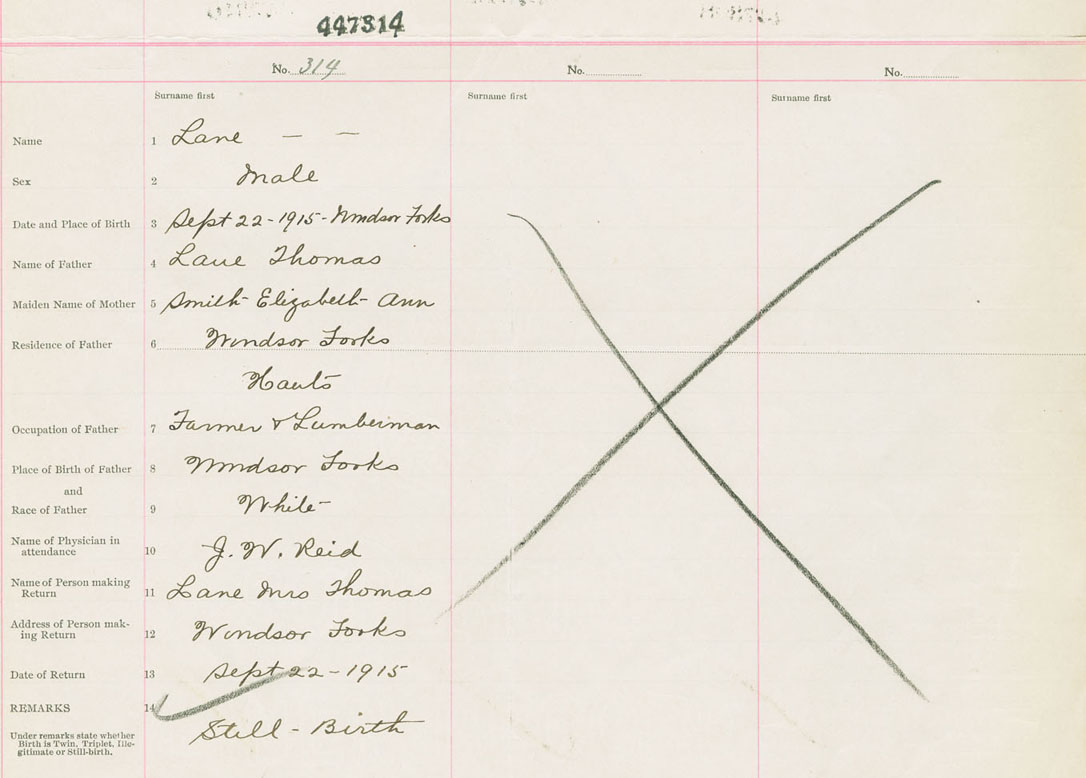 447314
No. 314 No. No.
Surname first Surname first Surname first
Name 1 Lane — —
Sex 2 Male
Date and Place of Birth 3 Sept 22-1915-Windsor Forks
Name of Father 4 Lane Thomas
Maiden Name of Mother 5 Smith Elizabeth Ann
Residence of Father 6 Windsor Forks
Hants
Occupation of Father 7 Farmer & Lumberman
Place of Birth of Father 8 Windsor Forks
and
Race of Father 9 White
Name of Physician in
attendance 10 J. W. Reid
Name of Person making
Return 11 Lane Mrs Thomas
Address of Person mak-
ing Return 12 Windsor Forks
Date of Return 13 Sept 22-1915
REMARKS 14
Still - Birth
Under remarks state whether
Birth is Twin, Triplet, Ille-
gitimate or Still-birth.